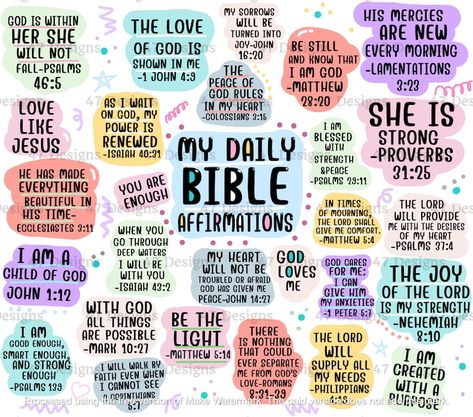 GOD IS WITHIN
HER SHE
WILL NOT
FALL-PSALMS
46:5
THE LOVE
OF GOD IS
SHOWN IN ME
-1 JOHN 4:9
MY SORROWS
WILL BE
TURNED INTO
JOY-JOHN
16:20
BE STILL
AND KNOW THAT
I AM GOD
-MATTHEW
28:20
HIS MERCIES
ARE NEW
EVERY MORNING
-LAMENTATIONS
3:23
LOVE
LIKE
JESUS
AS I WAIT
ON GOD, MY
POWER IS
RENEWED
-ISAIAH 40:31
THE
PEACE OF
GOD RULES
IN MY HEART
-COLOSSIANS 3:15
I AM
BLESSED
WITH
STRENGTH
&PEACE
-PSALMS 29:11
SHE IS
STRONG
-PROVERBS
31:25
MY DAILY
BIBLE
AFFIRMATIONS
HE HAS MADE
EVERYTHING
BEAUTIFUL IN
HIS TIME-
ECCLESIASTES 3:11
YOU ARE
ENOUGH
IN TIMES
OF MOURNING,
THE LORD SHALL
GIVE ME COMFORT.
-MATTHEW 5:4
THE LORD
WILL PROVIDE
ME WITH THE DESIRES
OF MY HEART
-PSALMS 37:4
I AM A
CHILD OF GOD
JOHN 1:12
WHEN YOU
GO THROUGH
DEEP WATERS
I WILL BE
WITH YOU
-ISAIAH 43:2
MY HEART
WILL NOT BE
TROUBLED OR AFRAID
GOD HAS GIVEN ME
PEACE-JOHN 14:27
GOD
LOVES
ME
GOD CARES
FOR ME;
I CAN
GIVE HIM
MY ANXIETIES
-1 PETER 5:7
THE JOY
OF THE LORD
IS MY STRENGTH
-NEHEMIAH
8:10
I AM
GOOD ENOUGH,
SMART ENOUGH,
AND STRONG
ENOUGH
-PSALMS 139
WITH GOD
ALL THINGS
ARE POSSIBLE
-MARK 10:27
BE THE
LIGHT
-MATTHEW 5:14
THERE IS
NOTHING THAT
COULD EVER
SEPARATE ME
FROM GOD'S
LOVE-ROMANS
8:31-39
THE LORD
WILL
SUPPLY ALL
MY NEEDS
-PHILIPPIANS
4:19
I AM
CREATED
WITH A
I WILL WALK BY
FAITH EVEN WHEN
I CANNOT SEE
-2 CORINTHIANS
5:7
47 Designs
Processed using the free version of Make Watermark. The paid version does not add this mark.